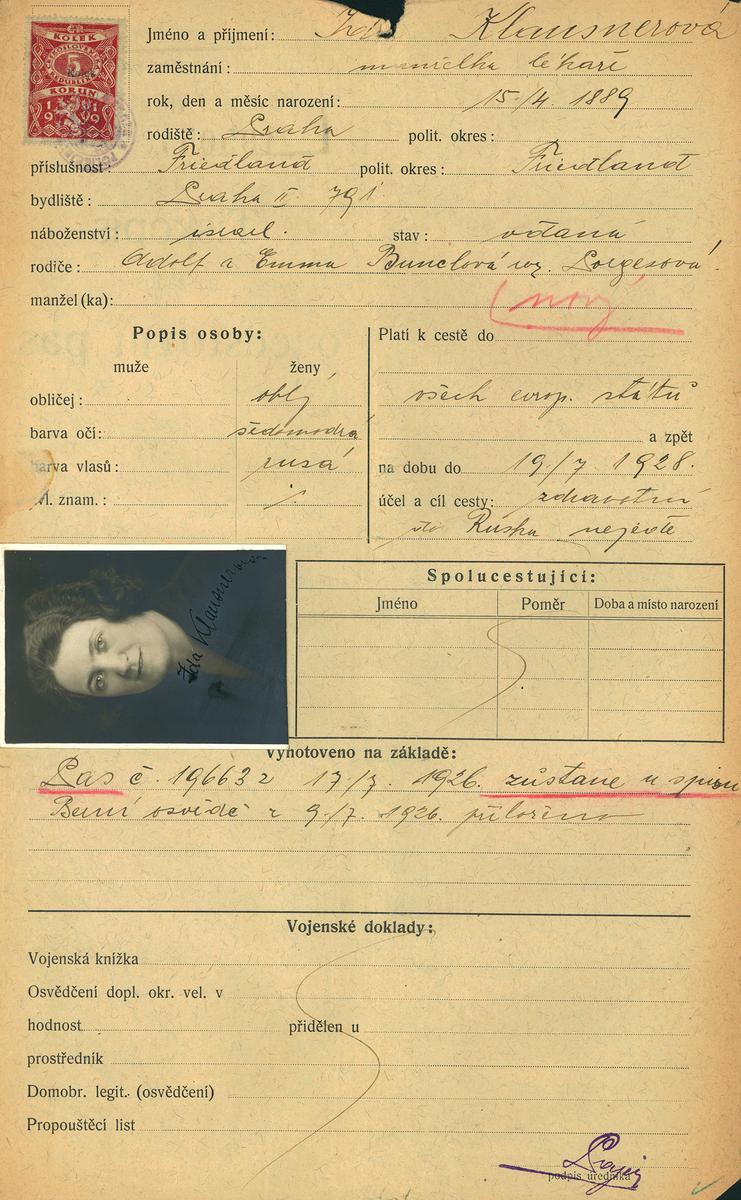 KOLEK
ČESKOSLOVENSKÁ
REPUBLIKA
5
KORUN
1919
Jméno a příjmení: Ida Klausnerová
zaměstnání: manželka lékaře
rok, den a měsíc narození: 15./4. 1889
rodiště: Praha polit. okres:
příslušnost: Friedland polit. okres: Friedland
bydliště: Praha II. 791
náboženství: israel. stav: vdaná
rodiče: Adolf a Emma Bunclová roz. Porgesová
manžel(ka): (nový)
Popis osoby:
muže ženy
obličej: oblý
barva očí: šedomodrá
barva vlasů: rusá
zvl. znam.: /.
Platí k cestě do
všech evrop. států
a zpět
na dobu do 19./7. 1928.
účel a cíl cesty: zdravotní
do Ruska nejede
Ida Klausnerová
Spolucestující:
Jméno Poměr Doba a místo narození
Vyhotoveno na základě:
Pas č. 19663 z 17./7. 1926. zůstane u spisu
Berní osvědč z 9./7. 1926. přiloženo
Vojenské doklady:
Vojenská knížka
Osvědčení dopl. okr. vel. v
hodnost přidělen u
prostředník
Domobr. legit. (osvědčení)
Propouštěcí list
podpis úředníka